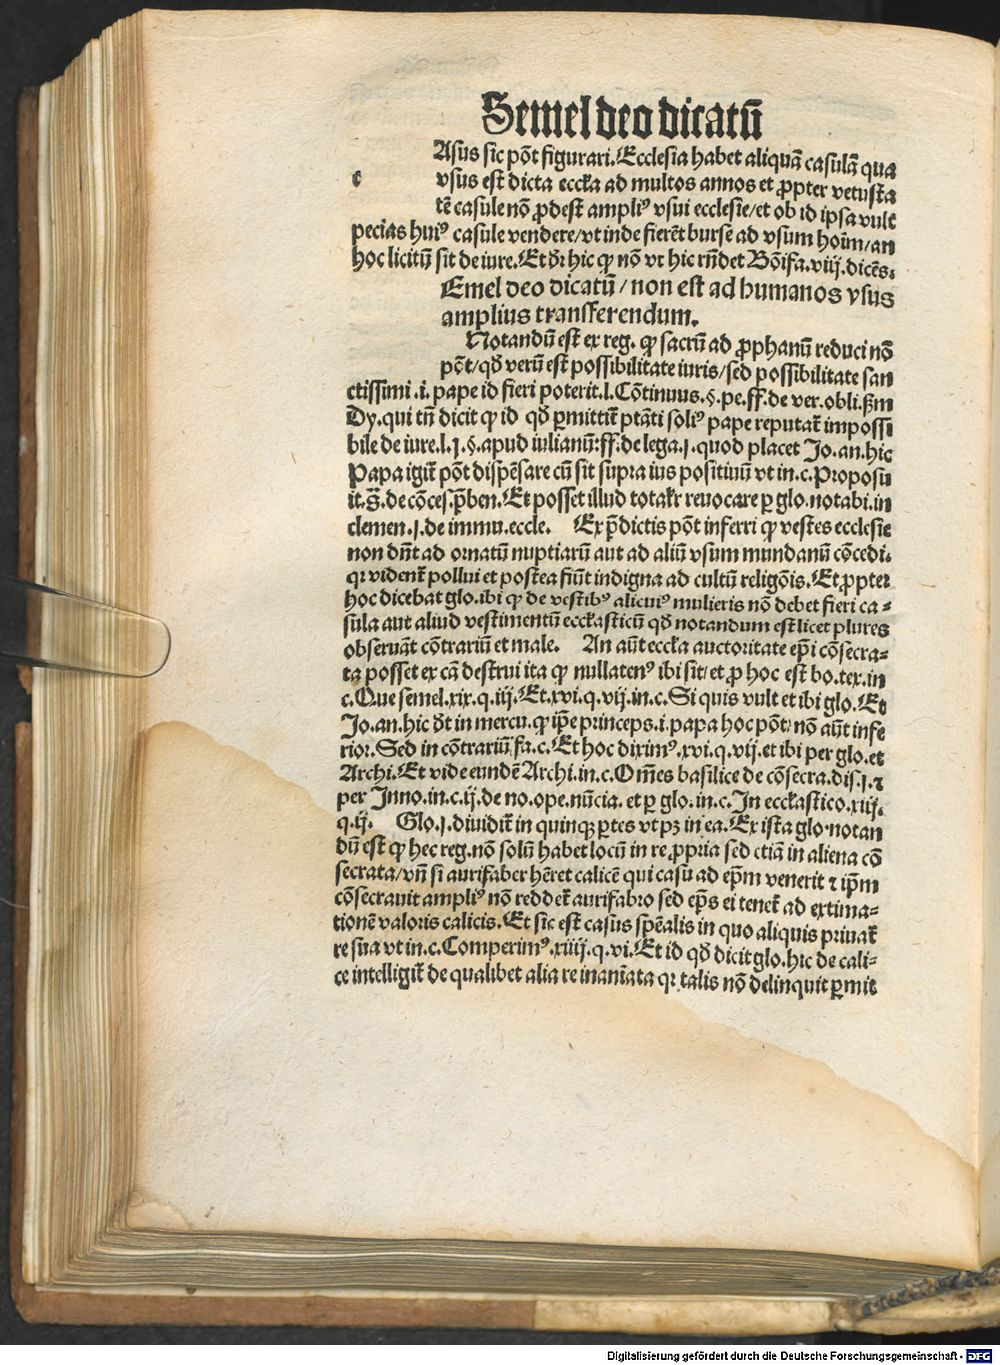 Semel deo dicatū
Asus sic pōt figurari. Ecclesia habet aliquā casulā qua
c
vsus est dicta eccľia ad multos annos et ꝓpter vetusta
tē casule nō ꝓdest ampliꝰ vsui ecclesie/et ob id ipsa vult
pecias huiꝰ casule vendere/vt inde fierēt burse ad vsum hoīm/an
hoc licitū sit de iure. Et dr̄ hic ꝙ nō vt hic rn̄det Bōifa.viij.dicēs.
Emel deo dicatū / non est ad humanos vsus
amplius transferendum.
Notandū est ex reg. ꝙ sacrū ad ꝓphanū reduci nō
pōt/qđ verū est possibilitate iuris/sed possibilitate san
ctissimi .i. pape id fieri poterit.l.Cōtinuus.§.pe.ff.de ver.obli.ẜm
Dy.qui tn̄ dicit ꝙ id qđ ꝑmittit̄ ptāti soliꝰ pape reputat̄ impossi
bile de iure.l.j.§.apud iulianū:ff.de lega.j.quod placet Jo.an.hic
Papa igit̄ pōt dispēsare cū sit supra ius positiuū vt in.c.Proposu
it.S̄.de cōces.p̄ben. Et posset illud totalr̄ reuocare ꝑ glo.notabi.in
clemen.j.de immu.eccle. Ex p̄dictis pōt inferri ꝙ vestes ecclesie
non dn̄t ad ornatū nuptiarū aut ad aliū vsum mundanū cōcedi.
qꝛ vident̄ pollui et postea fiūt indigna ad cultū religōis. Et ꝓpter
hoc dicebat glo.ibi ꝙ de vestibꝰ alicuiꝰ mulieris nō debet fieri ca⸗
sula aut aliud vestimentū eccľiasticū qđ notandum est licet plures
obseruāt cōtrariū et male. An aūt eccľia auctoritate ep̄i cōsecra⸗
ta posset ex cā destrui ita ꝙ nullatenꝰ ibi sit/ et ꝓ hoc est bo.tex.in
c.Que semel.xix.q.iij. Et.xvi.q.vij.in.c.Si quis vult et ibi glo. Et
Jo.an.hic dt̄ in mercu.ꝙ ip̄e princeps.i.papa hoc pōt/ nō aūt infe
rior. Sed in cōtrariū fa.c.Et hoc diximꝰ.xvi.q.vij.et ibi per glo.et
Archi. Et vide eundē Archi.in.c.Om̄es basilice de cōsecra.dis.j.⁊
per Inno.in.c.ij.de no.ope.nūcia. et ꝑ glo.in.c.In eccľiastico.xiij.
q.ij. Glo.j.diuidit̄ in quinqꝫ ꝑtes vt pꝫ in ea. Ex ista glo.notan
dū est ꝙ hec reg.nō solū habet locū in re ꝓpria sed etiā in aliena cō
secrata/vn̄ si aurifaber hēret calicē qui casu ad ep̄m venerit ⁊ ip̄m
cōsecrauit ampliꝰ nō reddet̄ aurifabro sed ep̄s ei tenet̄ ad extima⸗
tionē valoris calicis. Et sic est casus sp̄ealis in quo aliquis priuat̄
re sua vt in.c.Comperimꝰ.xiiij.q.vi. Et id qđ dicit glo.hic de cali⸗
ce intelligit̄ de qualibet alia re inaniata qꝛ talis nō delinquit ꝑmit
Digitalisierung gefördert durch die Deutsche Forschungsgemeinschaft - DFG